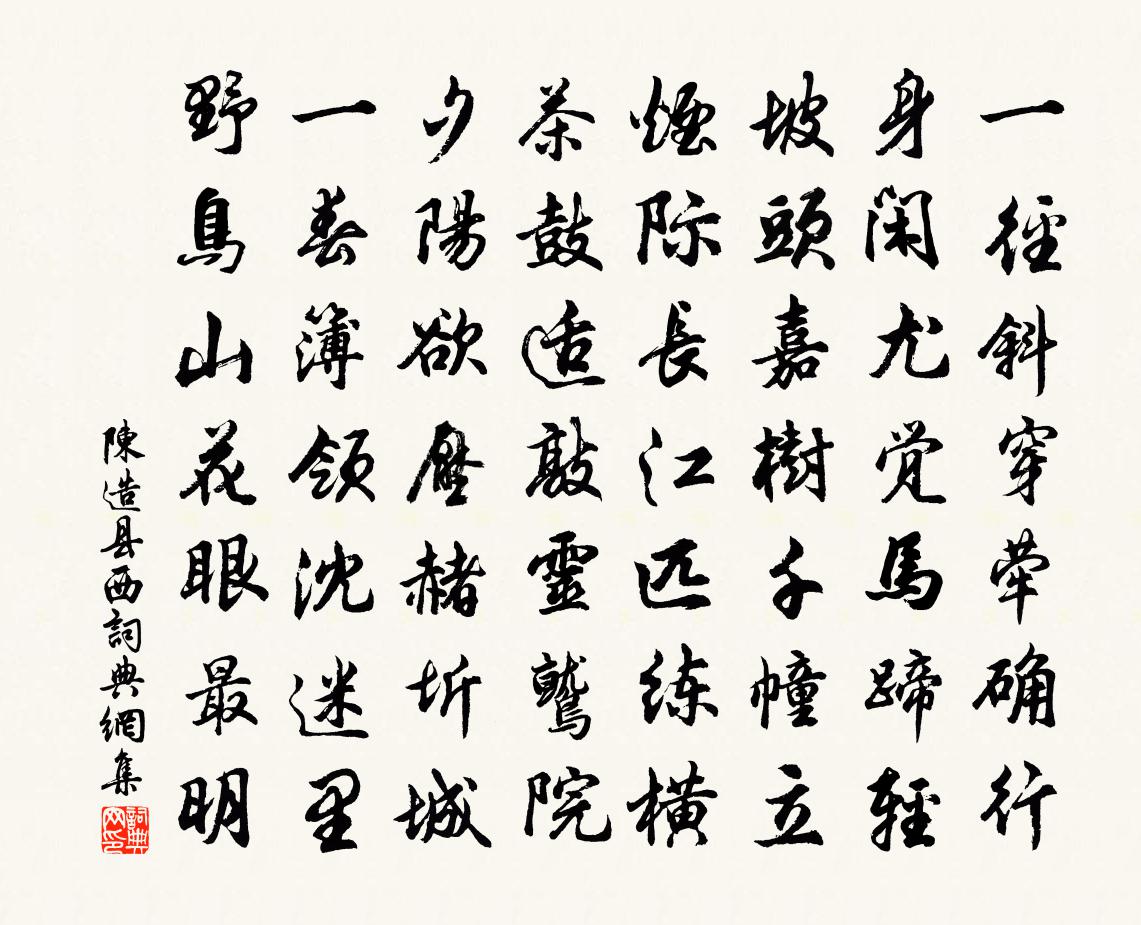 一徑斜穿荦确行
身閑尤觉馬蹄輕
坡頭嘉樹千幢立
煙际長江匹练橫
茶鼓适敲靈鷲院
夕陽欲壓赭圻城
一春簿領沈迷里
野鳥山花眼最明
陳造县西詞典網集
詞典网印